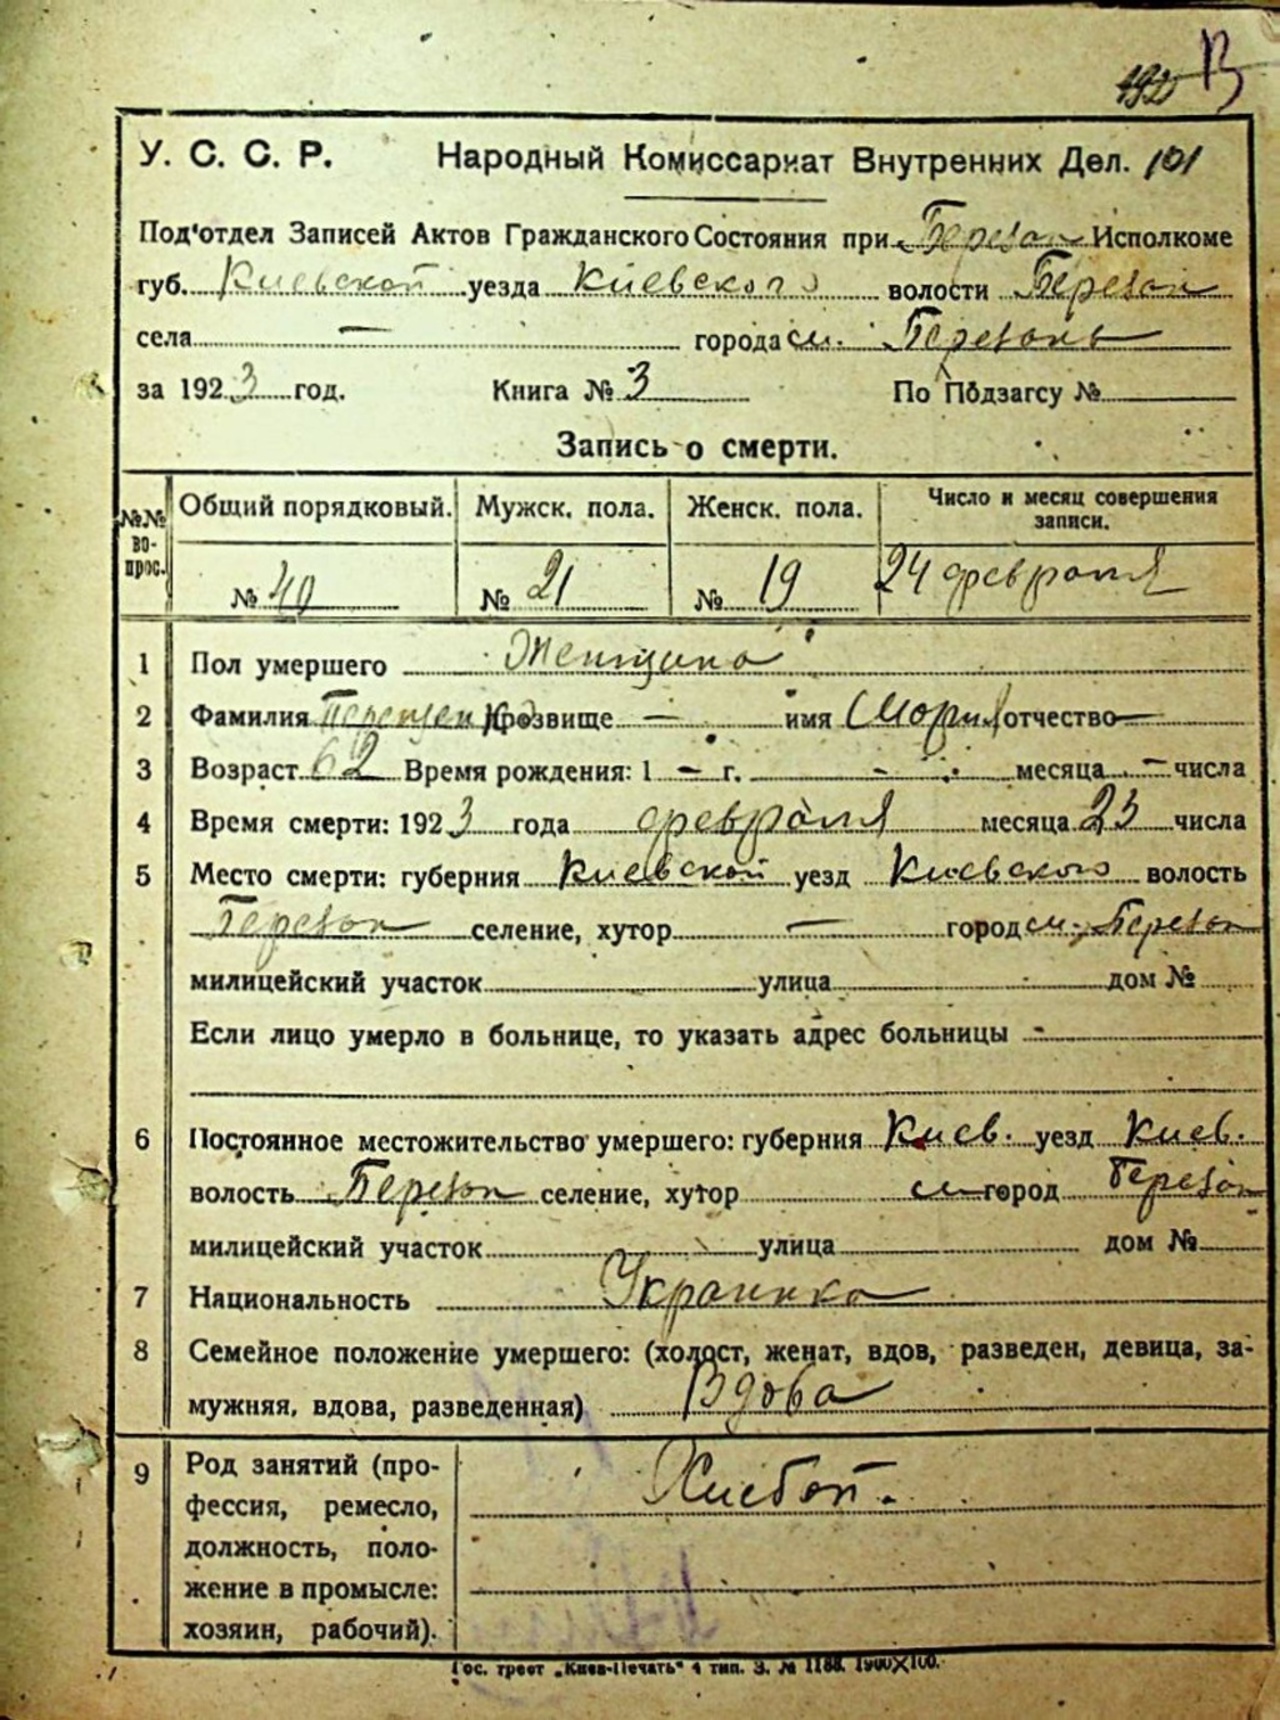 192 В
У. С. С. Р. Народный Комиссариат Внутренних Дел. 101
Под'отдел Записей Актов Гражданского Состояния при Березан Исполкоме
губ. Киевской уезда Киевского волости Березан
села — города м. Березань
за 1923 год. Книга № 3 По Подзагсу №
Запись о смерти.
№№ вопрос. Общий порядковый. Мужск. пола. Женск. пола. Число и месяц совершения записи.
№ 40 № 21 № 19 24 февраля
1 Пол умершего Женщина
2 Фамилия Прозвище — имя Мария отчество —
3 Возраст 62 Время рождения: 1 — г. - месяца — числа
4 Время смерти: 1923 года февраля месяца 23 числа
5 Место смерти: губерния Киевской уезд Киевского волость
Березан селение, хутор — город м. Березан
милицейский участок улица дом №
Если лицо умерло в больнице, то указать адрес больницы -
6 Постоянное местожительство умершего: губерния Киев. уезд Киев.
волость Березан селение, хутор м город Березан
милицейский участок улица дом №
7 Национальность Украинка
8 Семейное положение умершего: (холост, женат, вдов, разведен, девица, за-
мужняя, вдова, разведенная) Вдова
9 Род занятий (про- Хлебоп.
фессия, ремесло,
должность, поло-
жение в промысле:
хозяин, рабочий).
Гос. трест „Киев-Печать" 4 тип. З. № 1188. 1900✕100.